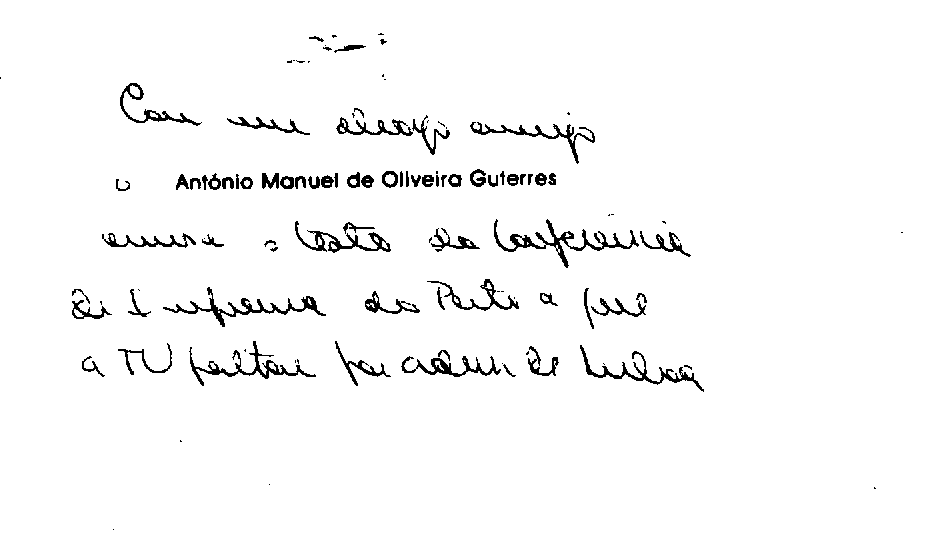 Com um abraço amigo
o António Manuel de Oliveira Guterres
envia o texto da Conferência
de Imprensa do Porto a que
a TV faltou por ordem de Lisboa